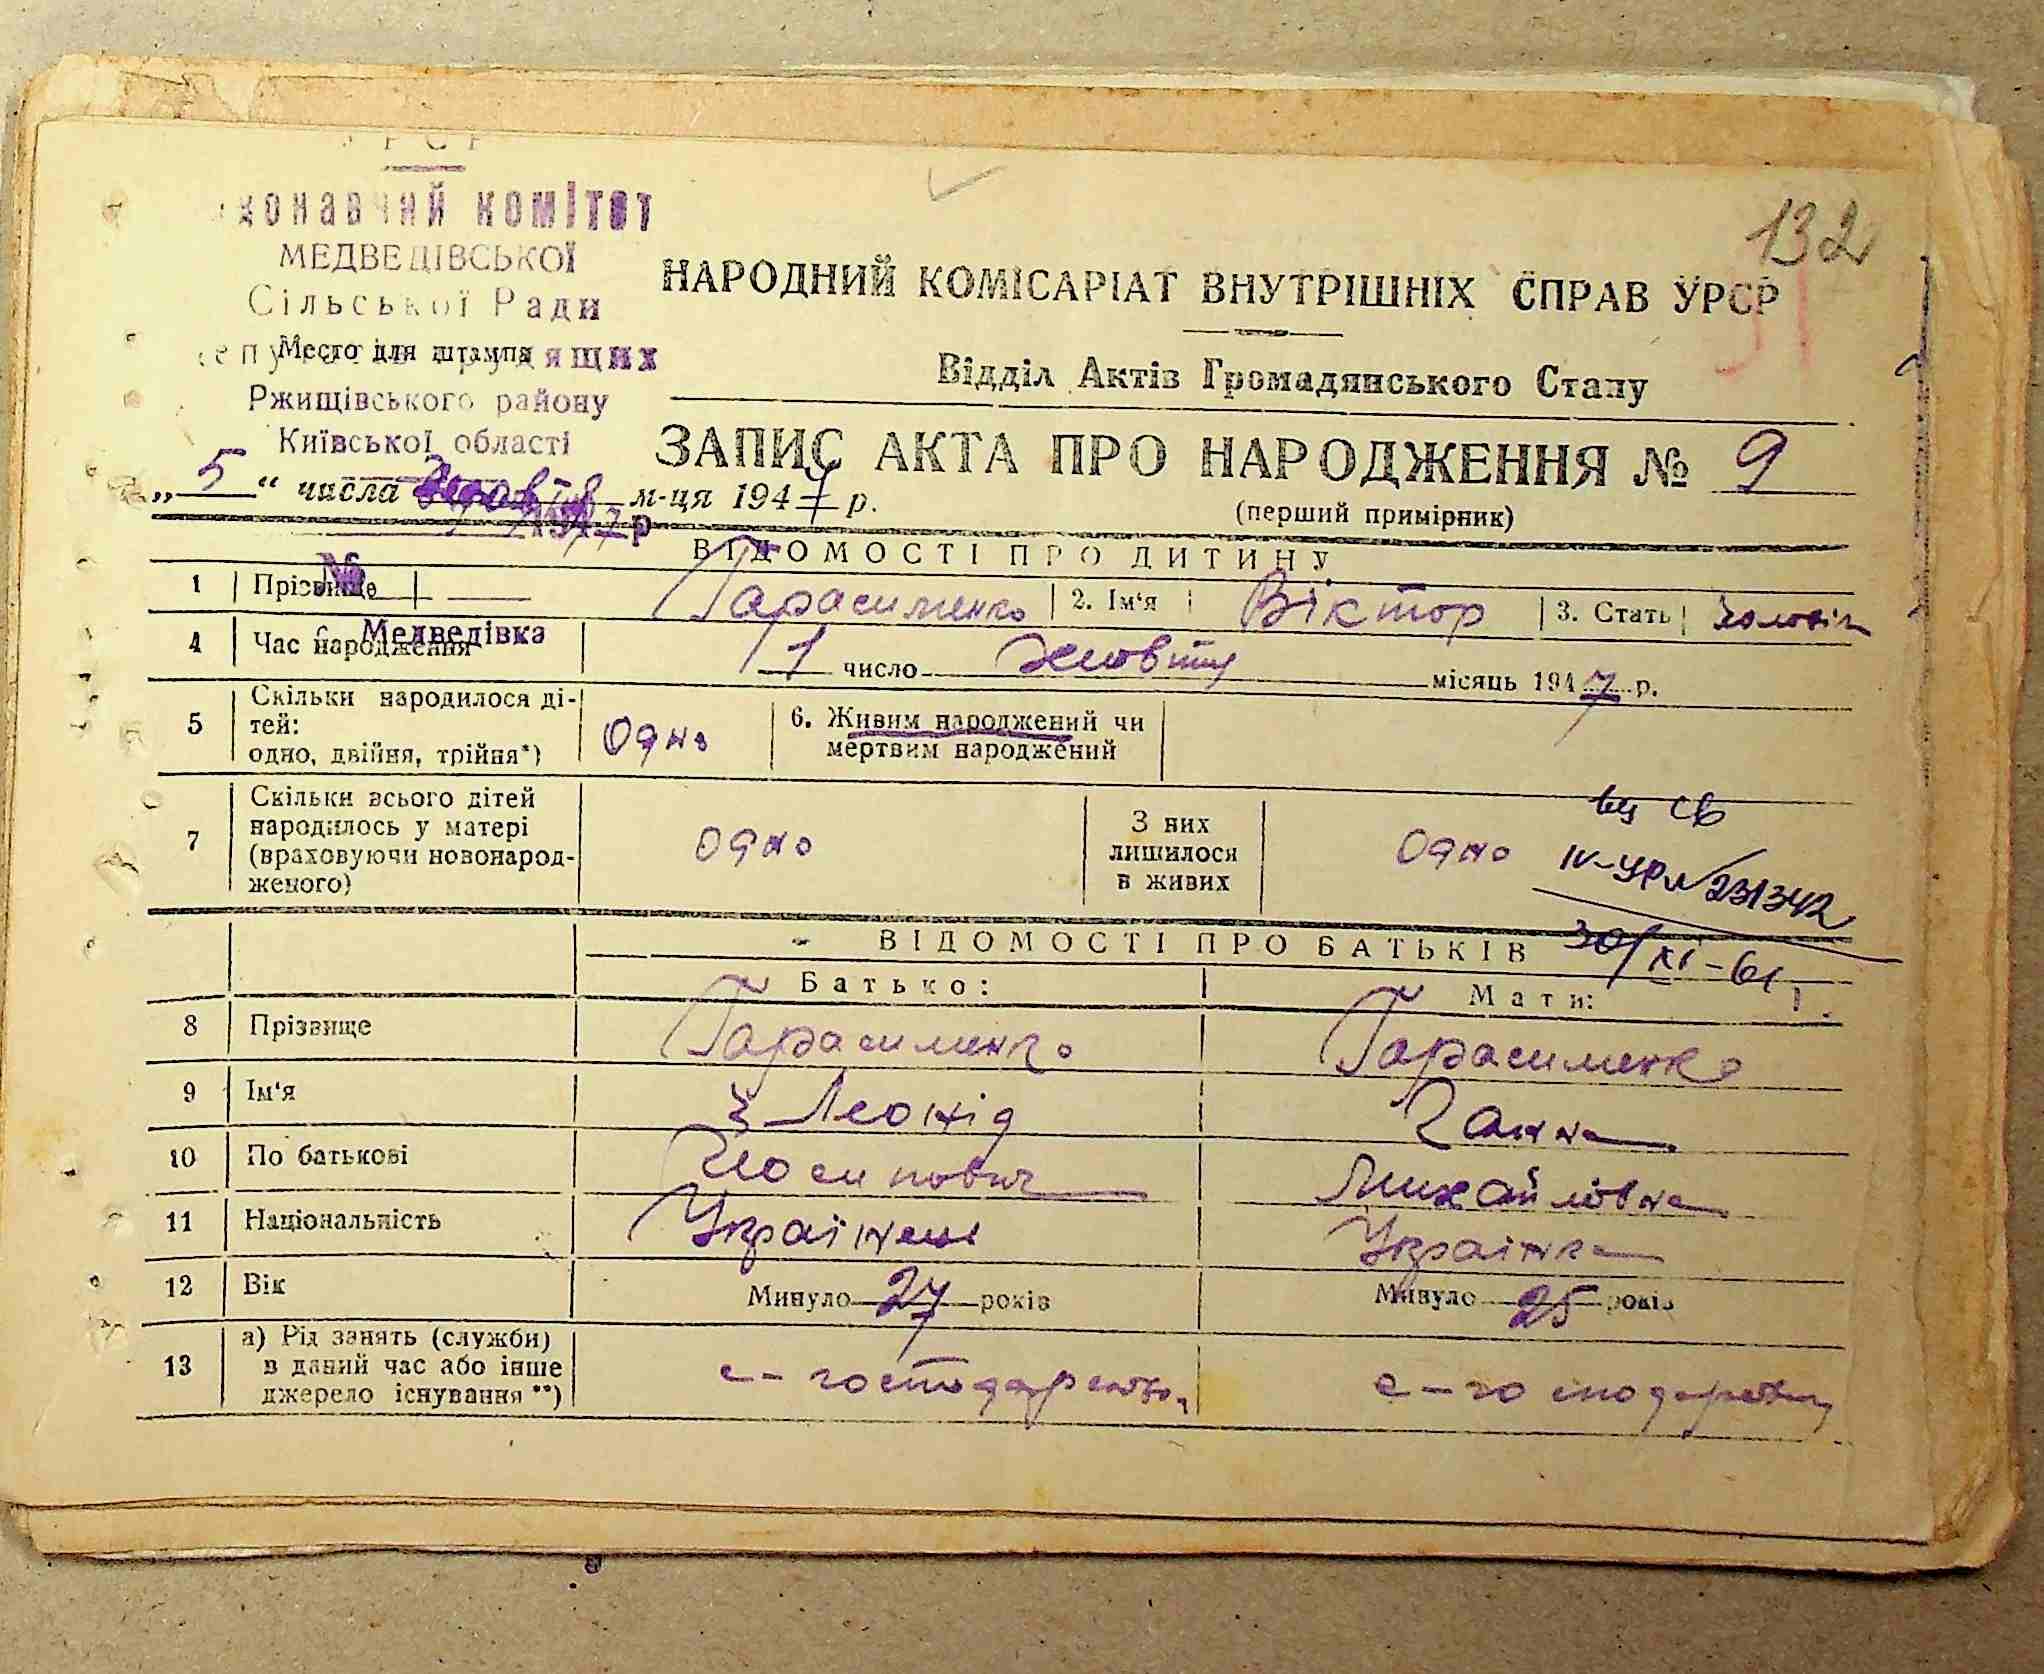 УРСР
конавчий комітет
МЕДВЕДІВСЬКОЇ
Сільської Ради
Место для штампа
ящих
Ржищівського району
Київської області
132
НАРОДНИЙ КОМІСАРІАТ ВНУТРІШНІХ СПРАВ УРСР
Відділ Актів Громадянського Стану
ЗАПИС АКТА ПРО НАРОДЖЕННЯ № 9
(перший примірник)
„5“ числа м-ця 1947 р.
194 7 р
№
с. Медведівка
ВІДОМОСТІ ПРО ДИТИНУ
1 Прізвище Гарасименко 2. Ім'я Віктор 3. Стать чоловіч
4 Час народження 1 число жовтня місяць 1947 р.
5 Скільки народилося ді-
тей:
одно, двійня, трійня*) одно 6. Живим народжений чи
мертвим народжений
7 Скільки всього дітей
народилось у матері
(враховуючи новонарод-
женого) одно З них
лишилося
в живих одно
св
IV-УР № 231342
30/XI-61
ВІДОМОСТІ ПРО БАТЬКІВ
Батько: Мати:
8 Прізвище Гарасименко Гарасименко
9 Ім'я Леонід Ганна
10 По батькові Йосипович Михайлівна
11 Національність Українець Українка
12 Вік Минуло 27 років Минуло 25 років
13 а) Рід занять (служби)
в даний час або інше
джерело існування **) с-господарства с-господарства